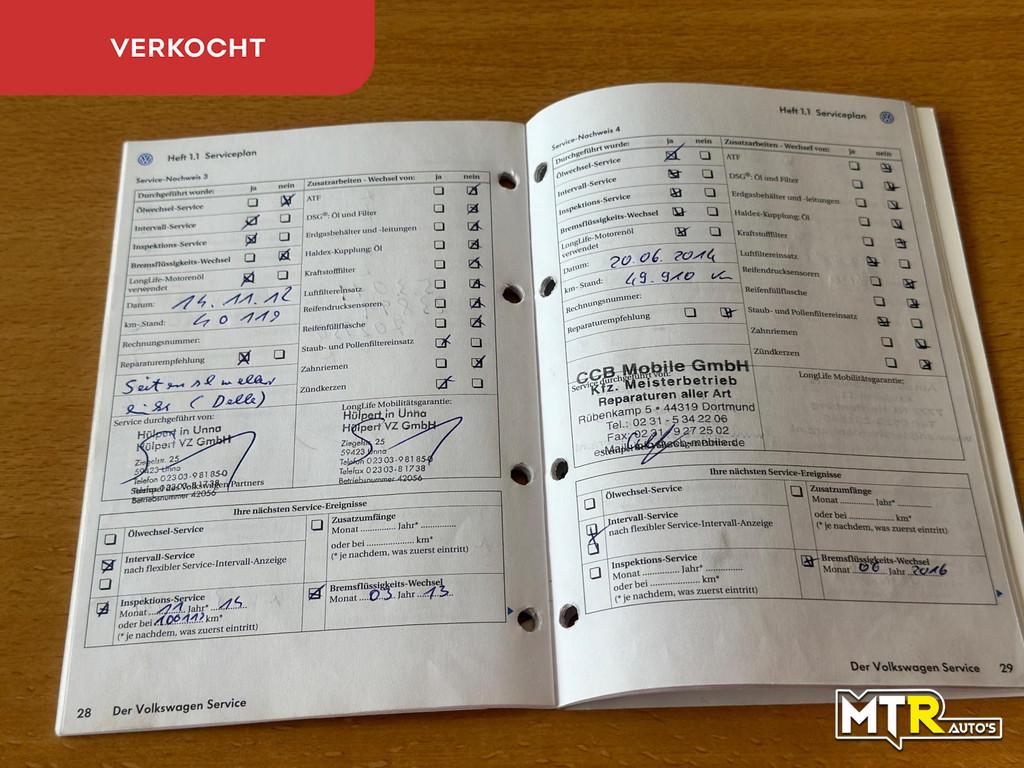 VERKOCHT
Heft 1.1 Serviceplan
Service-Nachweis 3
Durchgeführt wurde: ja nein
Ölwechsel-Service
Intervall-Service
Inspektions-Service
Bremsflüssigkeits-Wechsel
LongLife-Motorenöl
verwendet
Datum: 14.11.12
km-Stand: 40 119
Rechnungsnummer:
Reparaturempfehlung
Service durchgeführt von:
Hülpert in Unna
Hülpert VZ GmbH
Ziegelstr. 25
59423 Unna
Telefon 0 23 03-9 81 85-0
Telefax 0 23 03-8 17 38
Stempel des Volkswagen Partners
Betriebsnummer 42056
Zusatzarbeiten - Wechsel von: ja nein
ATF
DSG®: Öl und Filter
Erdgasbehälter und -leitungen
Haldex-Kupplung: Öl
Kraftstofffilter
Luftfiltereinsatz
Reifendrucksensoren
Reifenfüllflasche
Staub- und Pollenfiltereinsatz
Zahnriemen
Zündkerzen
LongLife Mobilitätsgarantie:
Hülpert in Unna
Hülpert VZ GmbH
Ziegelstr. 25
59423 Unna
Telefon 0 23 03-9 81 85-0
Telefax 0 23 03-8 17 38
Betriebsnummer 42056
Ihre nächsten Service-Ereignisse
Ölwechsel-Service
Intervall-Service
nach flexibler Service-Intervall-Anzeige
Inspektions-Service
Monat 11 Jahr*
oder bei km*
(* je nachdem, was zuerst eintritt)
Zusatzumfänge
Monat .............. Jahr* ..............
oder bei .............. km*
(* je nachdem, was zuerst eintritt)
Bremsflüssigkeits-Wechsel
Monat 03 Jahr 13
28 Der Volkswagen Service
Heft 1.1 Serviceplan
Service-Nachweis 4
Durchgeführt wurde: ja nein
Ölwechsel-Service
Intervall-Service
Inspektions-Service
Bremsflüssigkeits-Wechsel
LongLife-Motorenöl
verwendet
Datum: 20.06.2014
km-Stand: 49.910
Rechnungsnummer:
Reparaturempfehlung
Service durchgeführt von:
CCB Mobile GmbH
Kfz. Meisterbetrieb
Reparaturen aller Art
Rübenkamp 5 • 44319 Dortmund
Tel.: 02 31 - 5 34 22 06
Fax: 02 31 - 9 27 25 02
Zusatzarbeiten - Wechsel von: ja nein
ATF
DSG®: Öl und Filter
Erdgasbehälter und -leitungen
Haldex-Kupplung: Öl
Kraftstofffilter
Luftfiltereinsatz
Reifendrucksensoren
Reifenfüllflasche
Staub- und Pollenfiltereinsatz
Zahnriemen
Zündkerzen
LongLife Mobilitätsgarantie:
Ihre nächsten Service-Ereignisse
Ölwechsel-Service
Intervall-Service
nach flexibler Service-Intervall-Anzeige
Inspektions-Service
Monat .............. Jahr* ..............
oder bei .............. km*
(* je nachdem, was zuerst eintritt)
Zusatzumfänge
Monat .............. Jahr* ..............
oder bei .............. km*
(* je nachdem, was zuerst eintritt)
Bremsflüssigkeits-Wechsel
Monat 06 Jahr 2016
Der Volkswagen Service 29
MTR AUTO'S